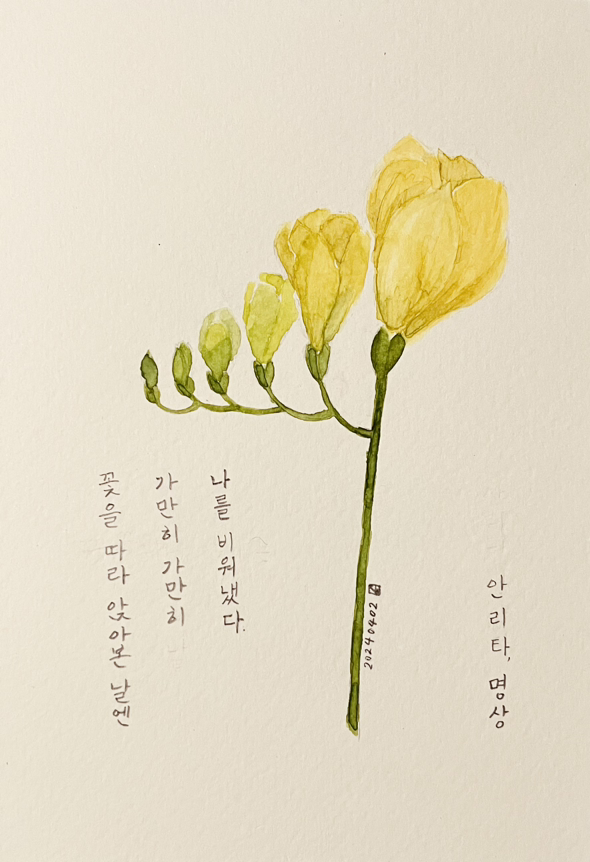 꽃을 따라 앉아본 날엔
가만히 가만히
나를 비워냈다.
20240402
안리타, 명상